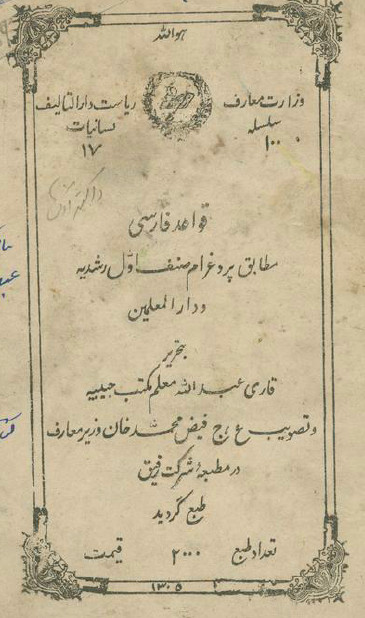 هوالله
وزارت معارف
سلسله
۱۰۰
ریاست دارالتالیف
لسانیات
۱۷
قواعد فارسی
مطابق پروغرام صنف اوّل رشدیه
و دارالمعلمین
بتحریر
قاری عبدالله معلم مکتب حبیبیه
و تصویب ع، ج فیض محمد خان وزیر معارف
در مطبعهٔ شرکت رفیق
طبع گردید
تعداد طبع ۲۰۰۰ قیمت
۱۳۰۵